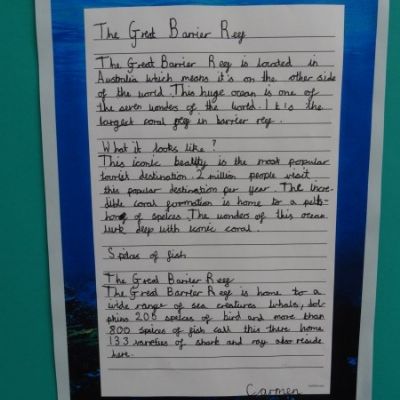 The Great Barrier Reef
The Great Barrier Reef is located in
Australia which means it's on the other side
of the world. This huge ocean is one of
the seven wonders of the world. It's the
largest coral reef in barrier reef.
What it looks like?
This iconic beatity is the most popular
tourist destination. 2 million people visit
this popular destination per year. The incre-
dible coral formation is home to a peltho-
horo of speices. The wonders of this ocean
lurk deep with iconic coral.
Speices of fish
The Great Barrier Reef
The Great Barrier Reef is home to a
wide range of sea creatures whale, dol-
phins 205 speices of bird and more than
800 speices of fish call this there home
133 varieties of shark and ray also reside
here.
Carmen